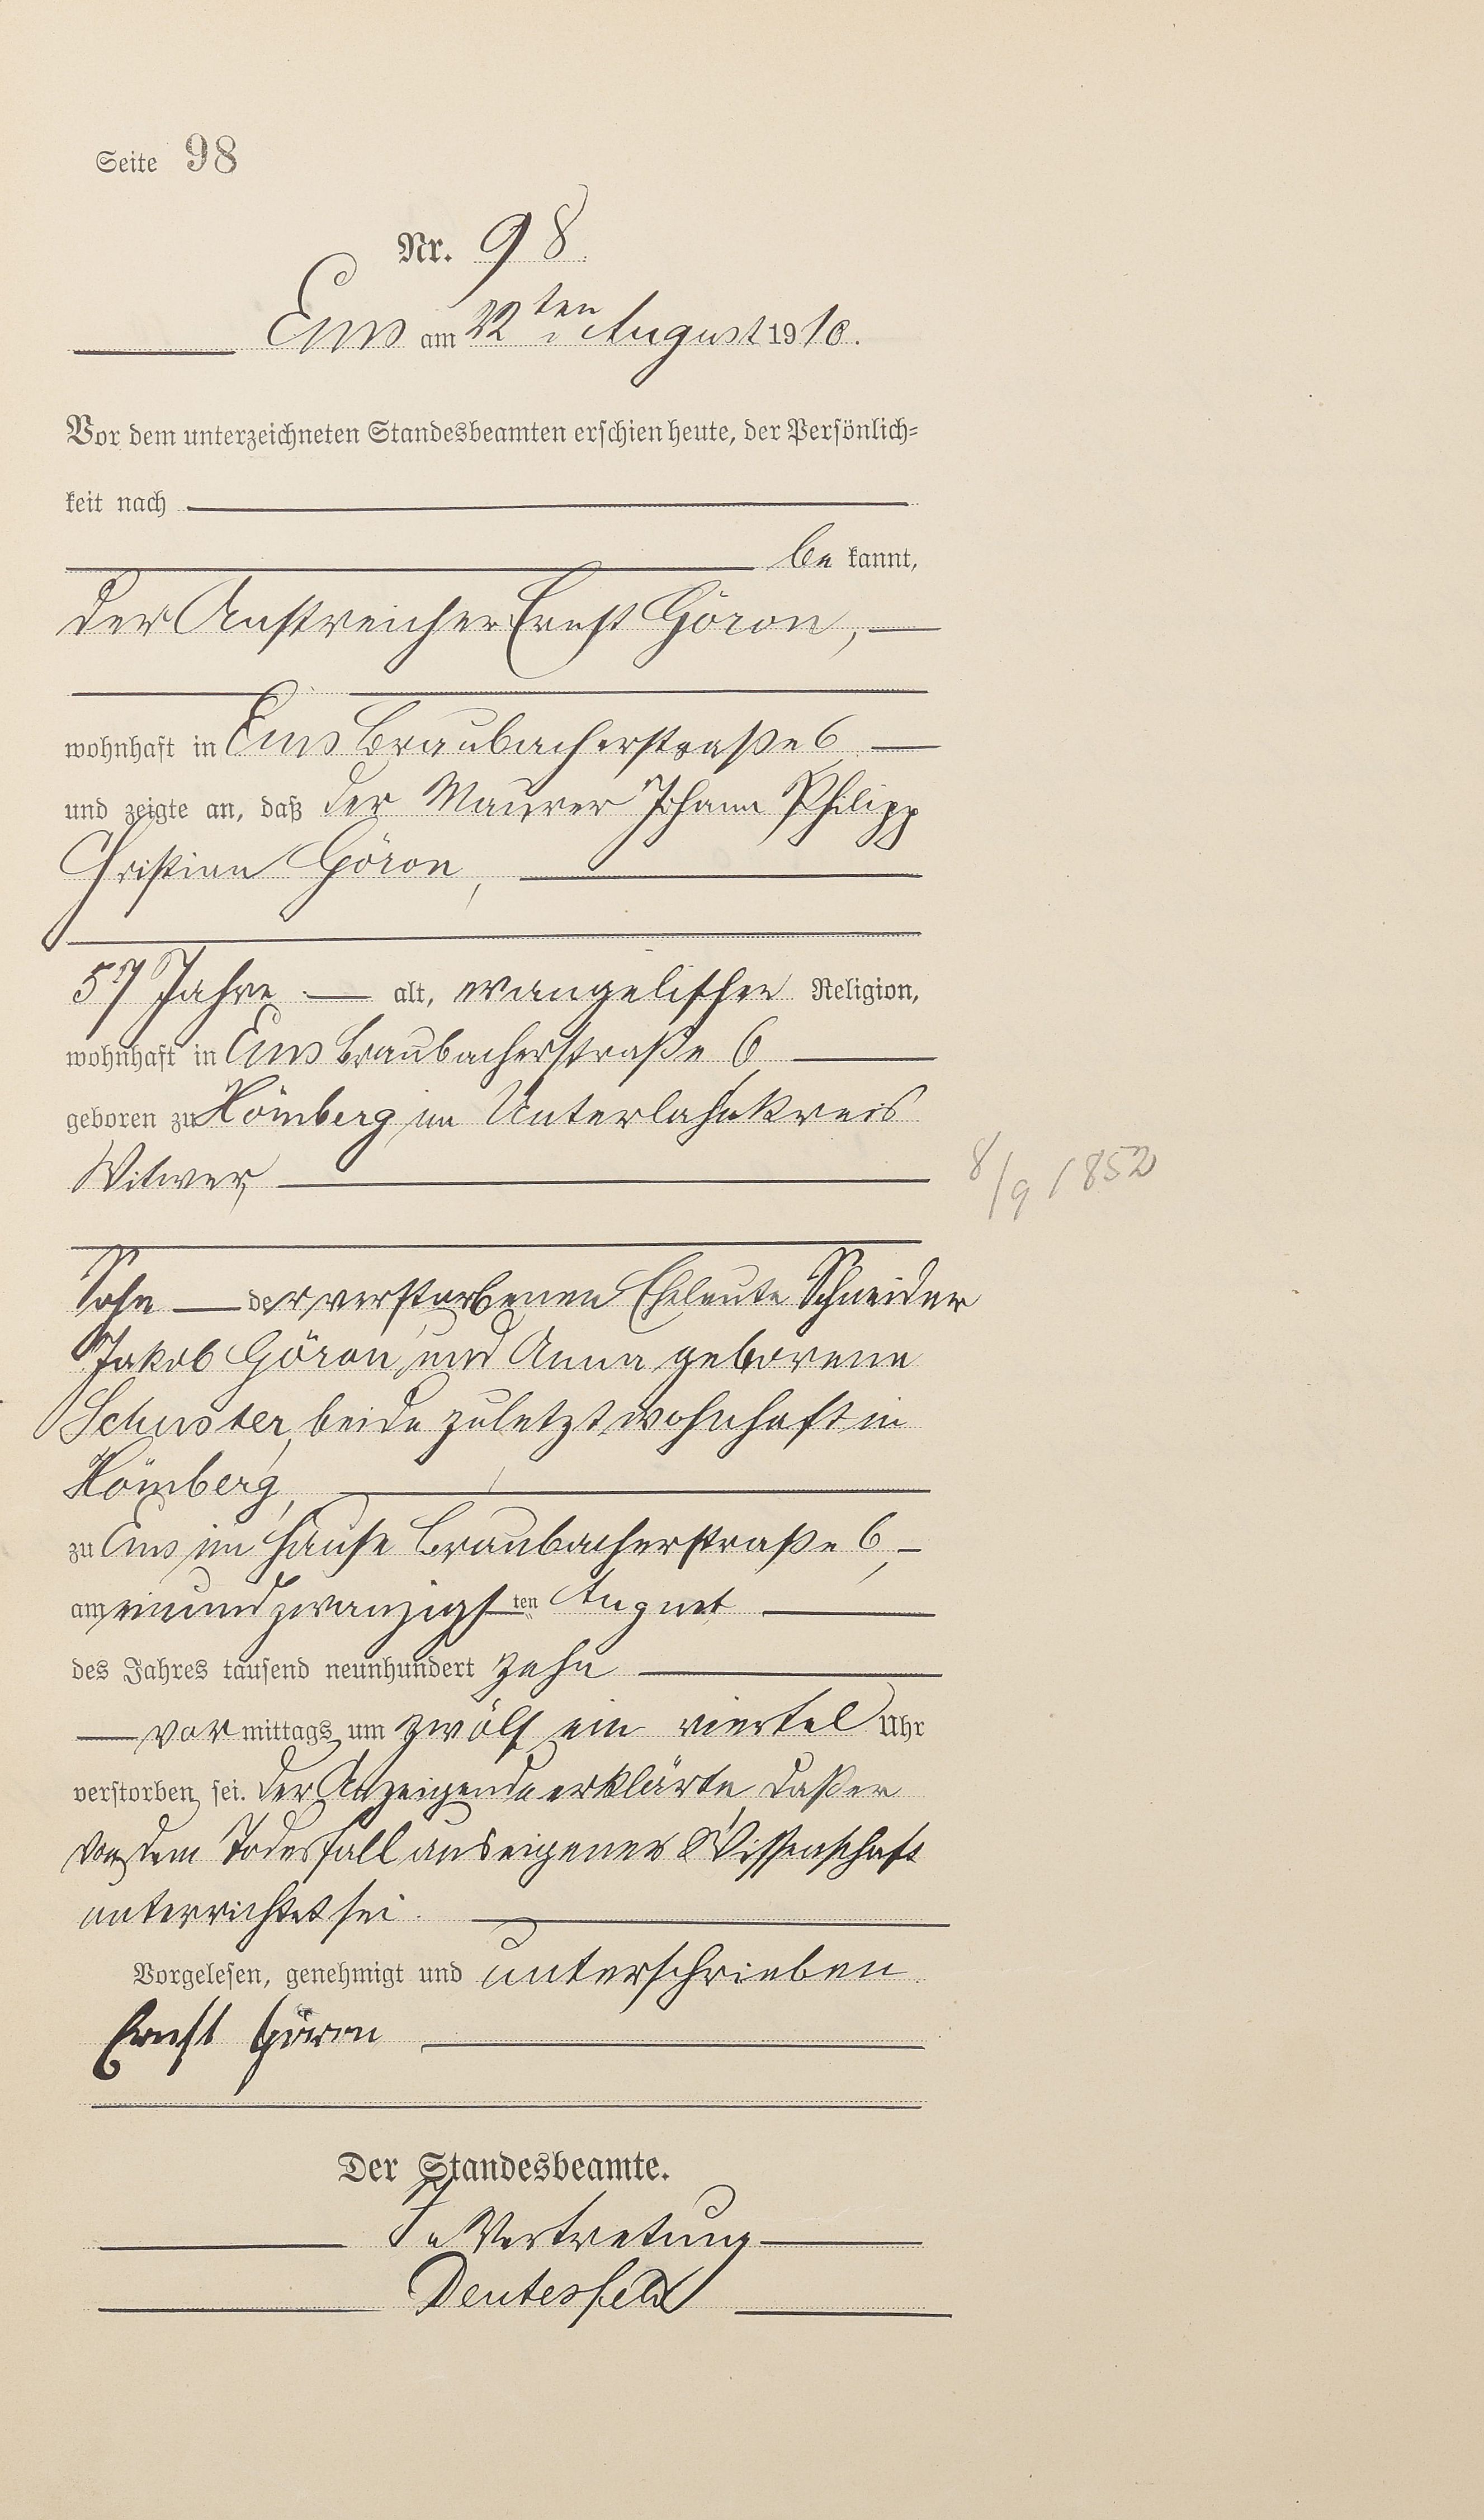 Seite 98
Nr. 98.
Ems am 22ten August 1910.
Vor dem unterzeichneten Standesbeamten erschien heute, der Persönlich-
keit nach
be kannt,
der Anstreicher Ernst Göron,
wohnhaft in Ems Braubacherstraße 6
und zeigte an, daß der Maurer Johann Philipp
Christian Göron,
57 Jahre alt, evangelischer Religion,
wohnhaft in Ems Braubacherstraße 6
geboren zu Hömberg im Unterlahnkreis
Witwer,
8/9 1852
Sohn der verstorbenen Eheleute Schneider
Jakob Göron und Anna geborene
Schuster, beide zuletzt wohnhaft in
Hömberg,
zu Ems im Hause Braubacherstraße 6,
am einundzwanzigsten August
des Jahres tausend neunhundert zehn
vor mittags um zwölf ein viertel Uhr
verstorben sei. Der Anzeigende erklärte, daß er
von dem Todesfall aus eigener Wissenschaft
unterrichtet sei.
Vorgelesen, genehmigt und unterschrieben
Ernst Göron
Der Standesbeamte.
In Vertretung
Deutesfeld